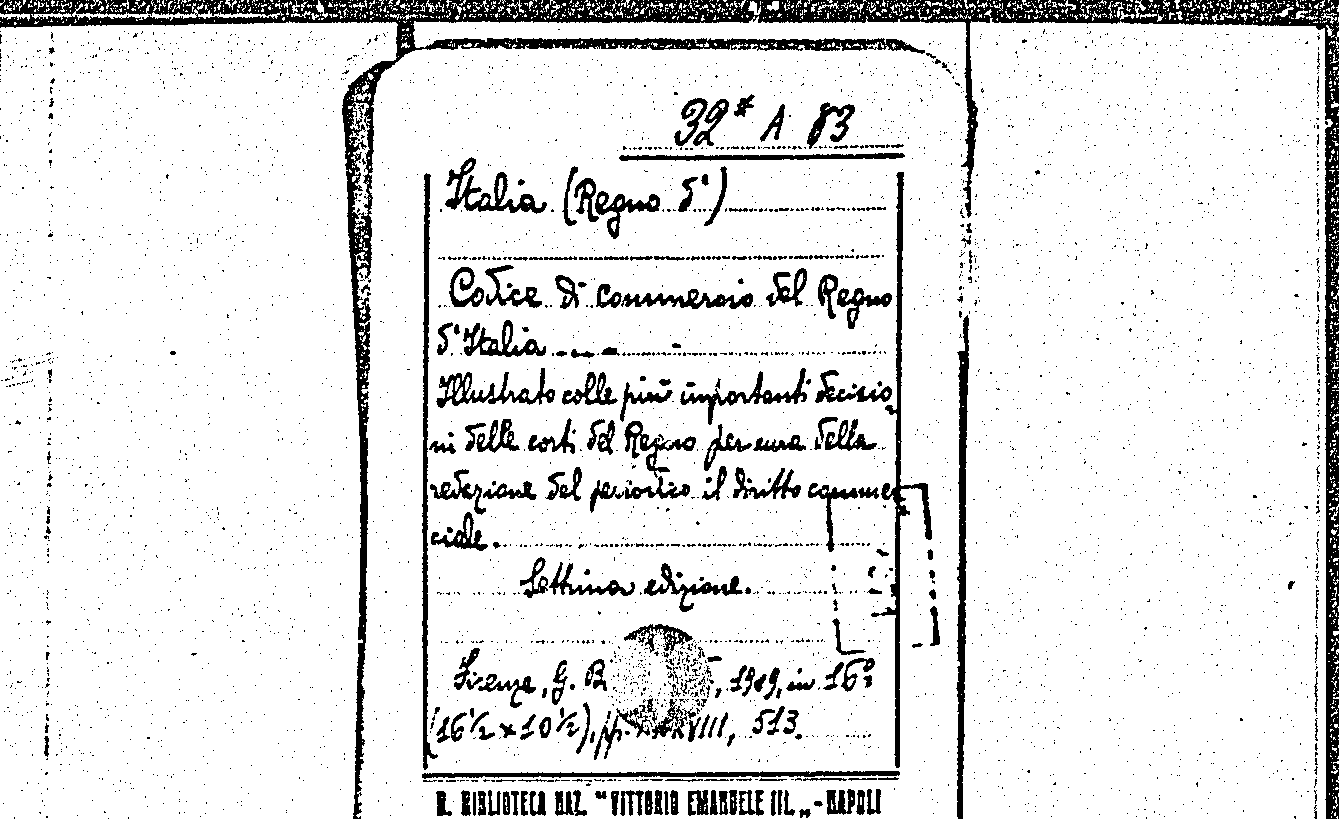 32* A 83
Italia (Regno d')
Codice di commercio del Regno
d'Italia ....
Illustrato colle più importanti decisio-
ni delle corti del Regno per cura della
redazione del periodico il diritto commer
ciale.
Settima edizione.
Firenze, G. 1909, in 16º
(16½ x 10½), pp. 513.
R. BIBLIOTECA NAZ. "VITTORIO EMANUELE III." - NAPOLI